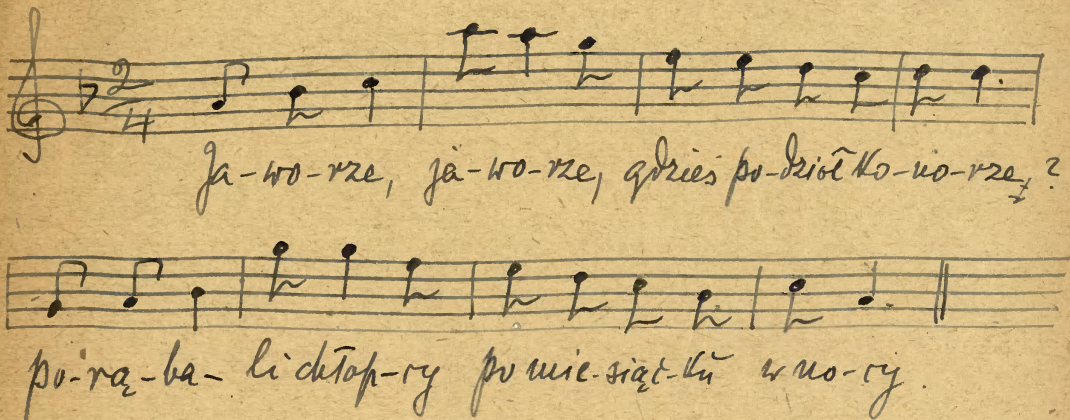 2
4
Ja-wo-rze, ja-wo-rze, gdzieś po-dzioł ko-no-rze, ?
po-rą-ba- li chłop-cy po mie-siąc-ku w no-cy.